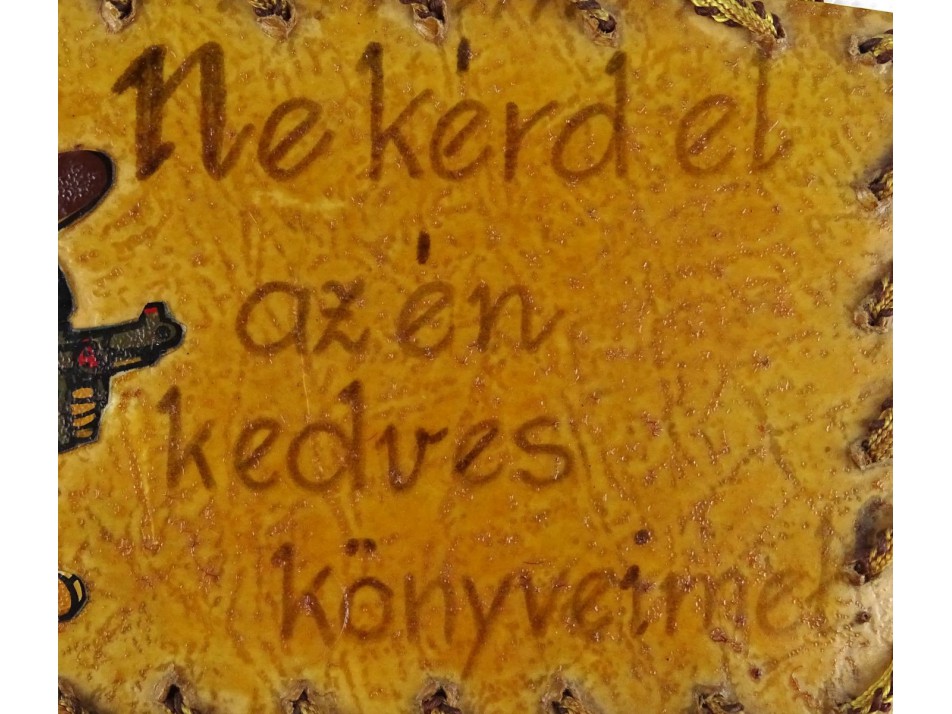 Ne kérd el
az én
kedves
könyveimet